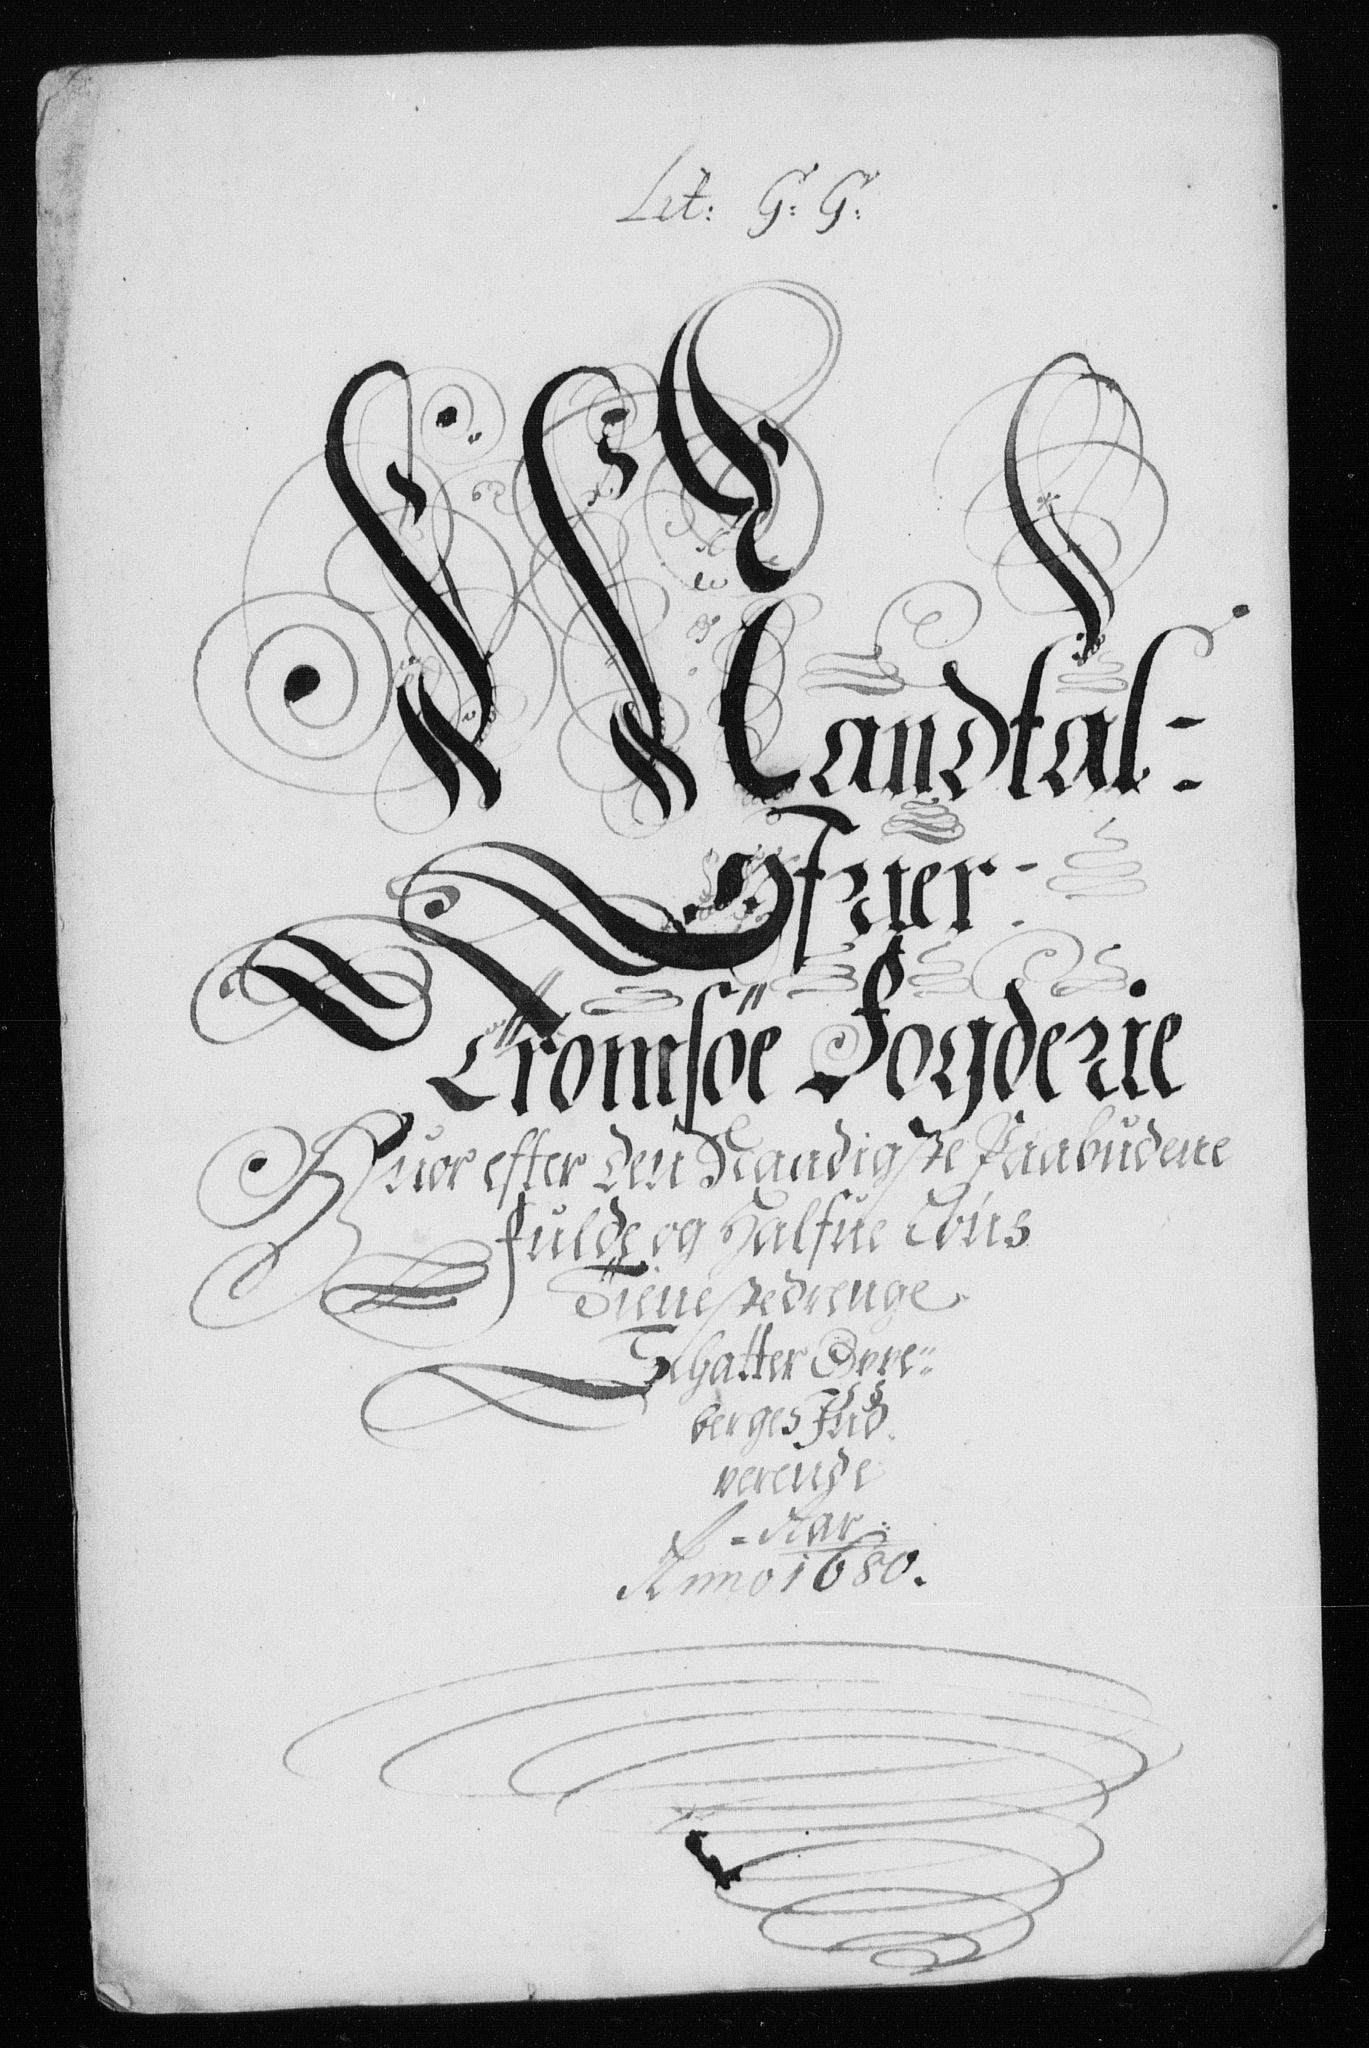 Lit: G: G:
Mandtal-
Ofuer-
Tromsöe Fogderie
Huor efter den Naadigste Paabudene
fulde og Halfue Løns
Tienestedrenge
Schatter Opre-
berges Ind
verende
- Aar:
Anno 1680.